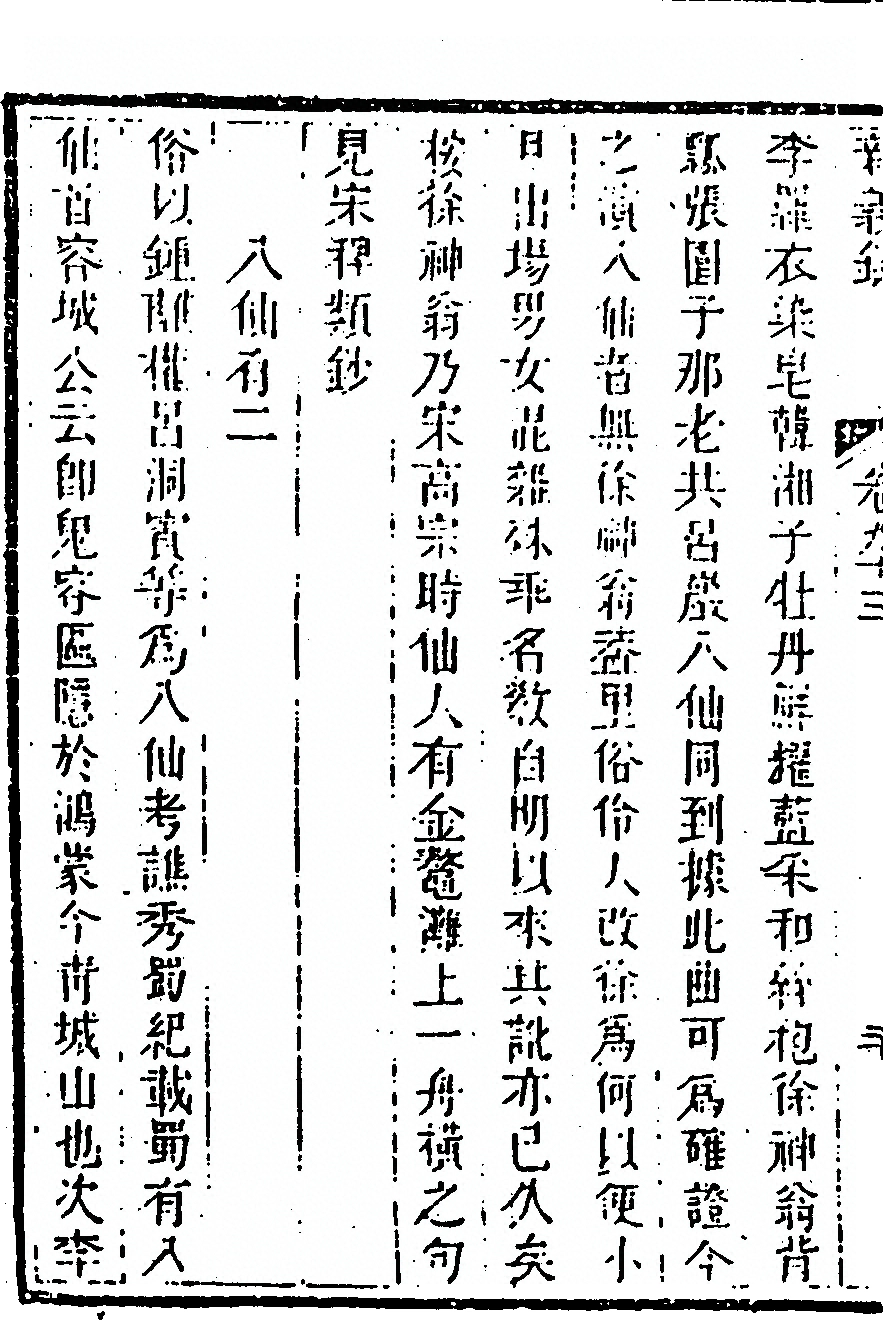 卷九十三
李羅衣染皂韓湘子牡丹鮮擢藍采和綠袍徐神翁背
瓢張園子那老共呂巖八仙同到據此曲可爲確證今
之演八仙者無徐神翁蓋里俗伶人改徐爲何以便小
旦出場男女混雜殊乖名敎自明以來其訛亦已久矣
按徐神翁乃宋高宗時仙人有金鼇灘上一舟橫之句
見宋稗類鈔
八仙有二
俗以鍾離權呂洞賓等爲八仙考譙秀蜀紀載蜀有八
仙首容城公云卽鬼容區隱於鴻蒙今靑城山也次李